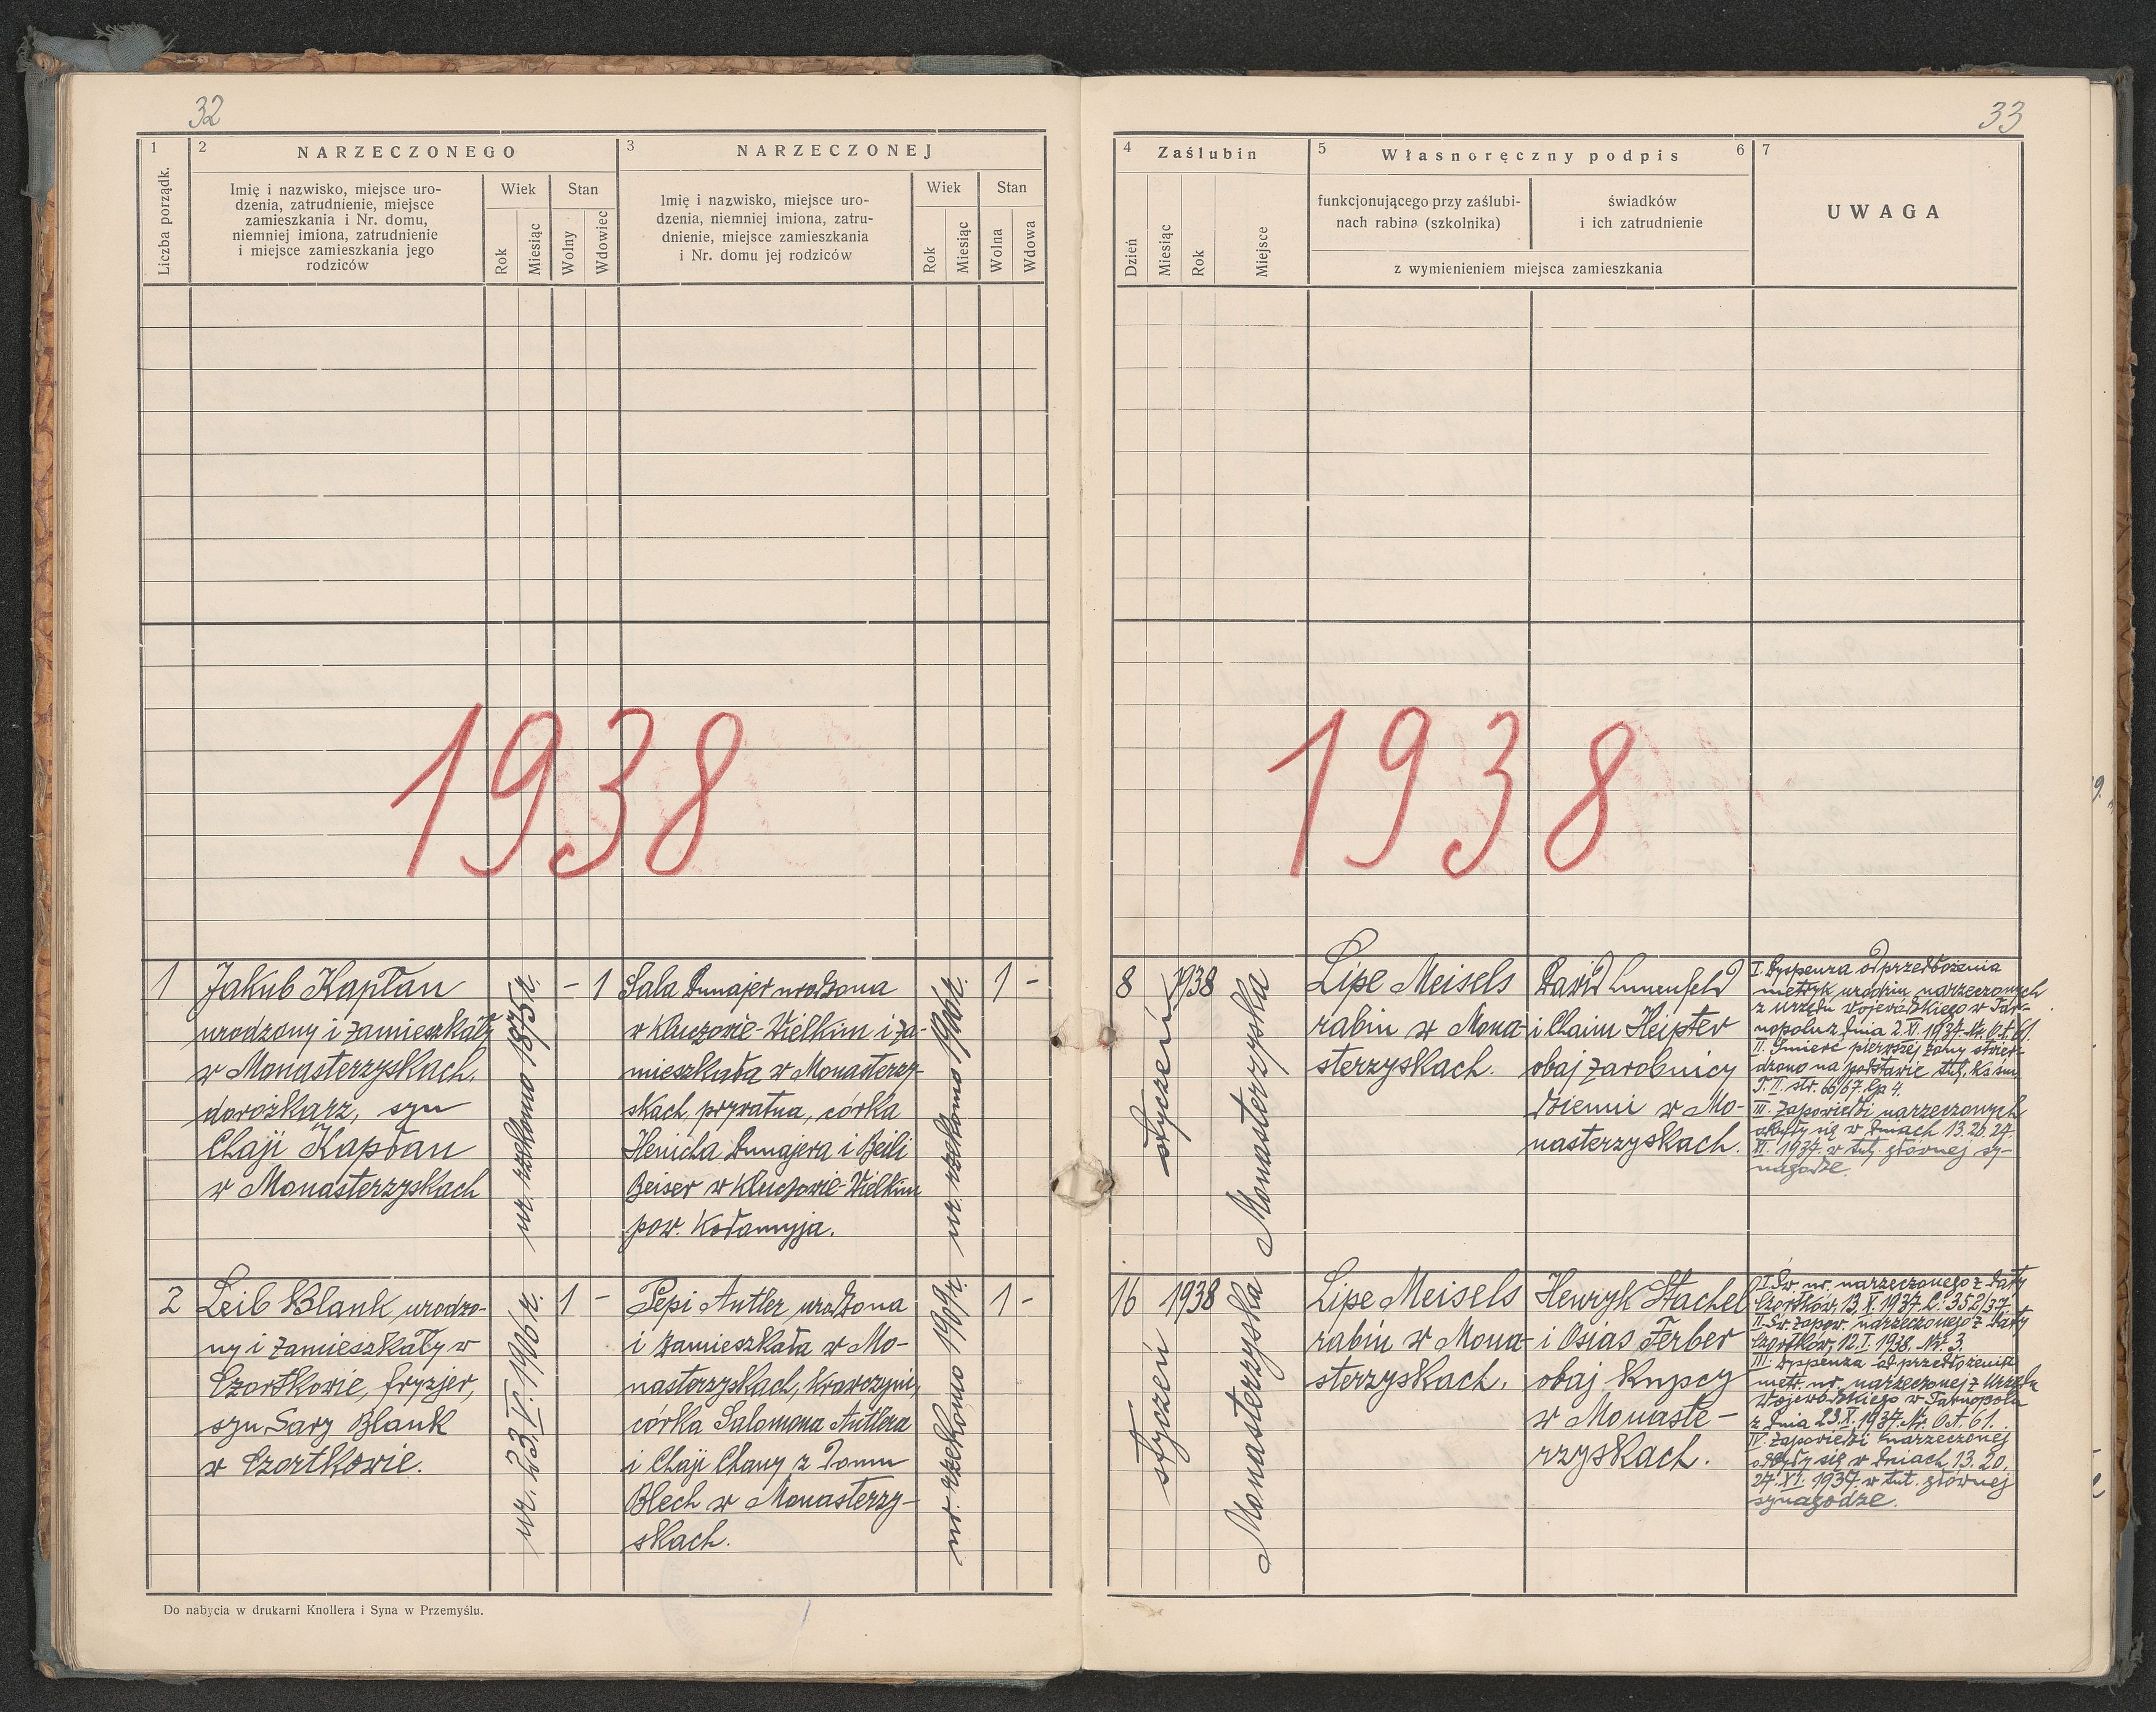 32
1
2
NARZECZONEGO
3
NARZECZONEJ
Liczba porządk.
Imię i nazwisko, miejsce uro-
dzenia, zatrudnienie, miejsce
zamieszkania i Nr. domu,
niemniej imiona, zatrudnienie
i miejsce zamieszkania jego
rodziców
Wiek
Stan
Rok
Miesiąc
Wolny
Wdowiec
Imię i nazwisko, miejsce uro-
dzenia, niemniej imiona, zatru-
dnienie, miejsce zamieszkania
i Nr. domu jej rodziców
Wiek
Stan
Rok
Miesiąc
Wolna
Wdowa
1938
1
Jakub Kapłan
urodzony i zamieszkały
w Monasterzyskach,
dorożkarz, syn
Chaji Kapłan
w Monasterzyskach
ur. rzekomo 1875 r.
- 1
Sala Dunajer urodzona
w Kluczowie-Wielkim i za-
mieszkała w Monasterzy-
skach, prywatna, córka
Henicha Dunajera i Beili
Beiser w Kluczowie-Wielkim
pow. Kołomyja.
ur. rzekomo 1906 r.
1 -
2
Leib Blank urodzo-
ny i zamieszkały w
Czortkowie, fryzjer,
syn Sary Blank
w Czortkowie.
ur. 23.V.1906 r.
1 -
Pepi Antler urodzona
i zamieszkała w Mo-
nasterzyskach, krawczyni,
córka Salomona Antlera
i Chaji Chany z domu
Blech w Monasterzy-
skach.
ur. rzekomo 1909 r.
1 -
Do nabycia w drukarni Knollera i Syna w Przemyślu.
33
4
Zaślubin
5
Własnoręczny podpis
6
7
Dzień
Miesiąc
Rok
Miejsce
funkcjonującego przy zaślubi-
nach rabina (szkolnika)
świadków
i ich zatrudnienie
z wymienieniem miejsca zamieszkania
UWAGA
1938
8
styczeń
1938
Monasterzyska
Lipe Meisels
rabin w Mona-
sterzyskach.
Dawid Lunenfeld
i Chaim Heipter
obaj zarobnicy
dzienni w Mo-
nasterzyskach.
I. Dyspenza od przedłożenia
metryk urodzin narzeczonych
z urzędu Wojewódzkiego w Tar-
nopolu z dnia 2.XI.1937. Nr. O.A. 61.
II. Śmierć pierwszej żony stwier-
dzono na podstawie tut. Ks. śm.
T. II. str. 66/67. Lp 4.
III. Zapowiedzi narzeczonych
odbyły się w dniach 13. 20. 27.
XI. 1937. w tut. głównej sy-
nagodze.
16
styczeń
1938
Monasterzyska
Lipe Meisels
rabin w Mona-
sterzyskach.
Henryk Stachel
i Osias Ferber
obaj kupcy
w Monaste-
rzyskach.
I. Św. ur. narzeczonego z daty
Czortków, 13.X.1937. L: 352/37.
II. Św. zapow. narzeczonego z daty
Czortków, 12.I.1938. Nr. 3.
III. Dyspenza od przedłożenia
metr. ur. narzeczonej z Urzędu
Wojewódzkiego w Tarnopolu
z dnia 23.X.1937. Nr. O.A. 61.
IV. Zapowiedzi narzeczonej
odbyły się w dniach 13. 20.
27. XI. 1937. w tut. głównej
synagodze.